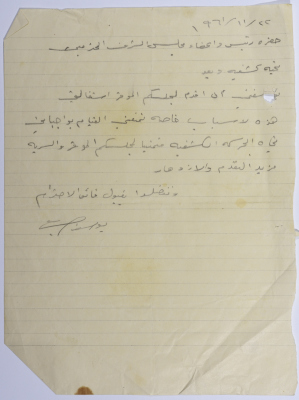 ١٩٦١/١١/٢٢
حضرة رئيس واعضاء مجلس الشرف المحترمين
تحية كشفية وبعد
يؤسفني ان اقدم لمجلسكم الموقر استقالتي
هذه لاسباب خاصة تمنعني القيام بواجباتي
في الحركة الكشفية متمنيا لمجلسكم الموقر والسرية
مزيد التقدم والازدهار
وتفضلوا بقبول فائق الاحترام